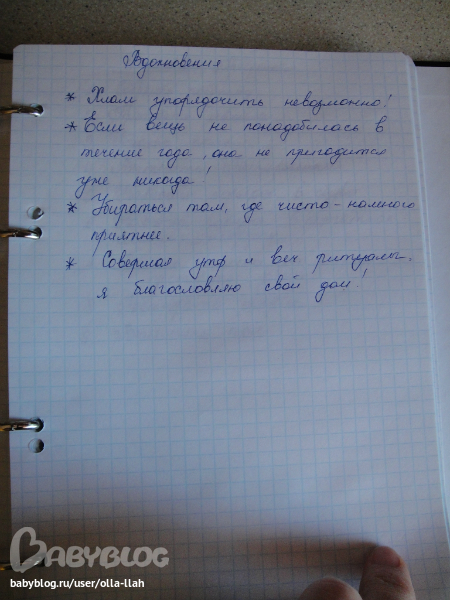 Вдохновения
* Хлам упорядочить невозможно!
* Если вещь не понадобилась в
течение года, она не пригодится
уже никогда!
* Убираться там, где чисто - намного
приятнее.
* Совершая утр и веч ритуалы,
я благословляю свой дом!
BABYBLOG
babyblog.ru/user/olla-llah